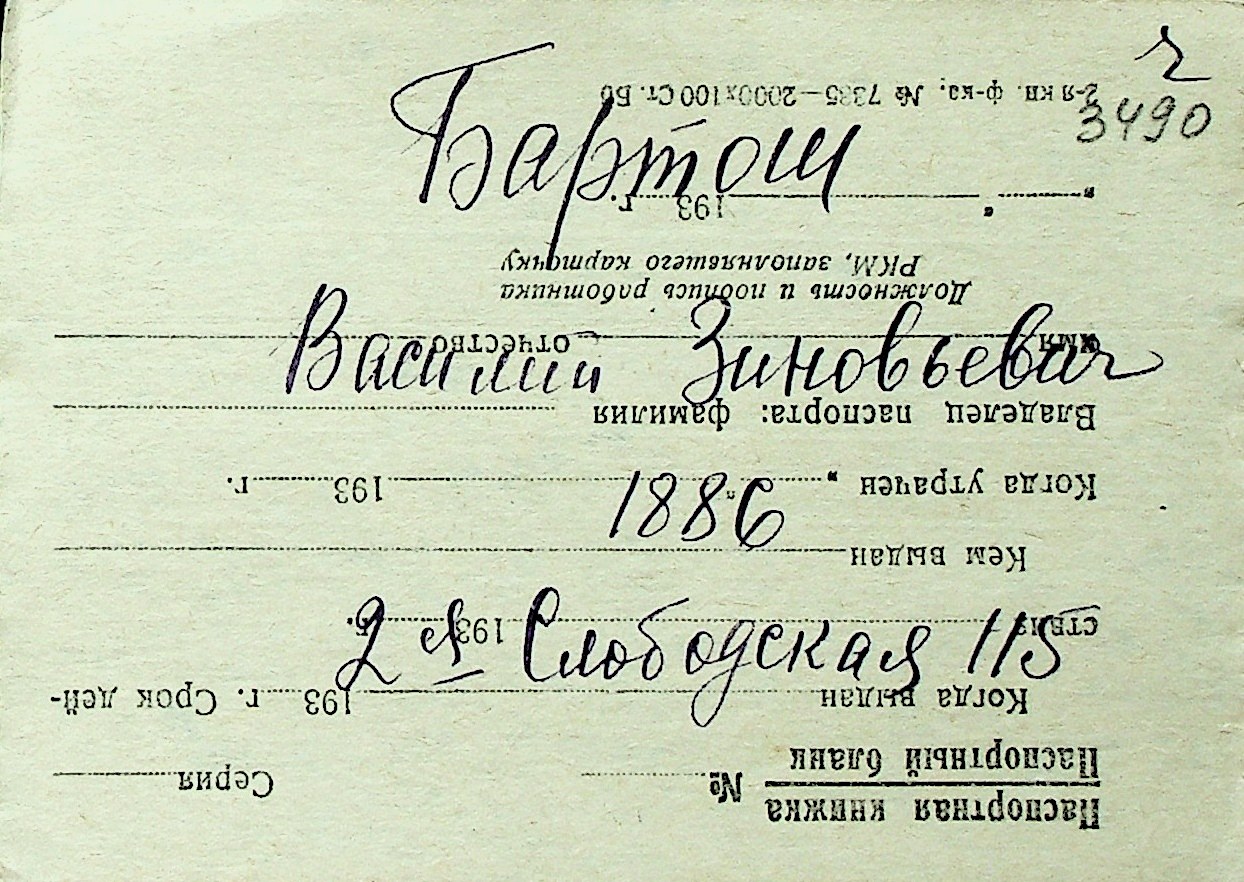 г
3490
Бартош
Василий Зиновьевич
1886
2 я Слободская 115
Паспортная книжка
Паспортный бланк
№ Серия
Когда выдан 193 г. Срок дей-
ствия 193 г.
Кем выдан
Когда утрачен „ " 193 г.
Владелец паспорта: фамилия
имя отчество
Должность и подпись работника
РКМ, заполнявшего карточку
„ " 193 г.
2-я кн. ф-ка, № 7335—2000х100 Ст. Бб